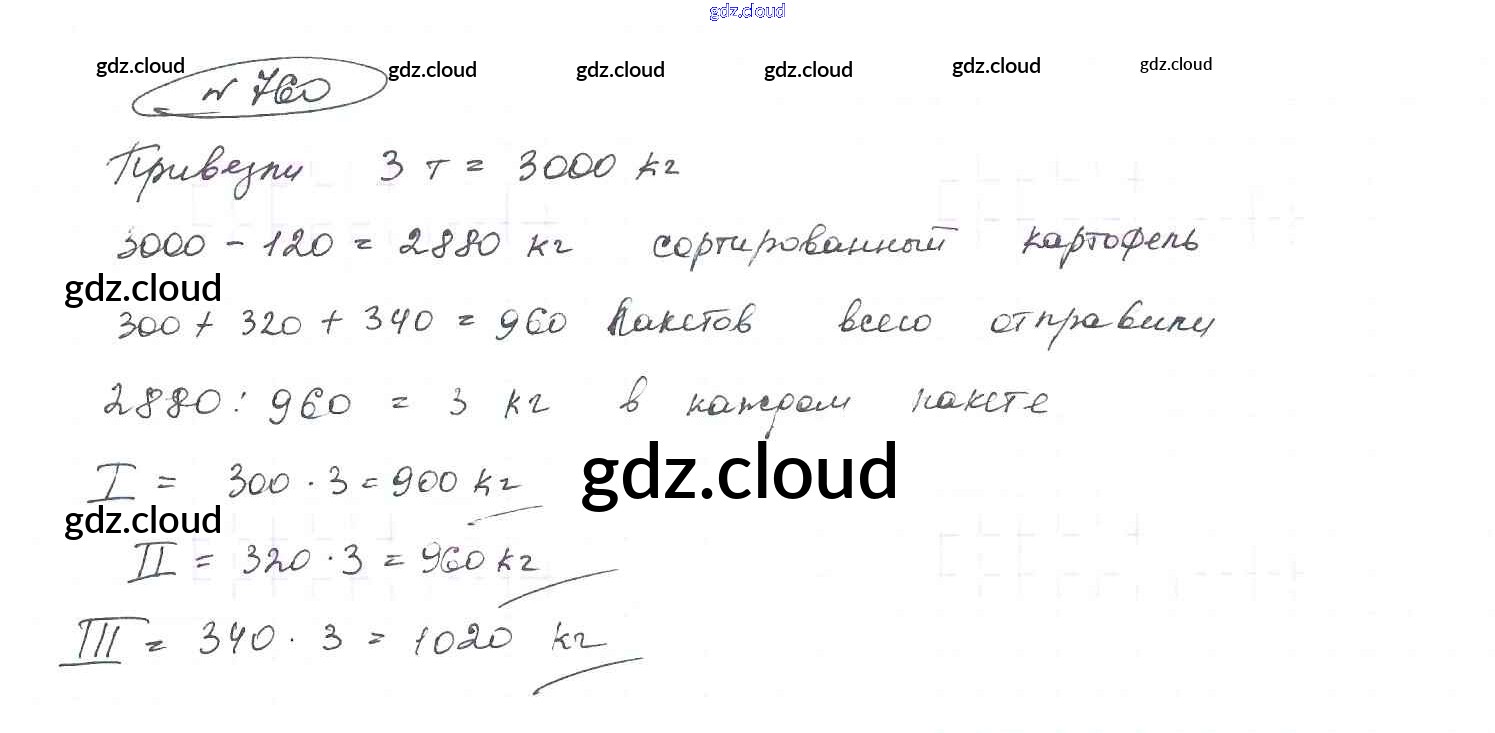 gdz.cloud
gdz.cloud gdz.cloud gdz.cloud gdz.cloud gdz.cloud gdz.cloud
N 760
Привезли 3 т = 3000 кг
3000 - 120 = 2880 кг сортированный картофель
gdz.cloud
300 + 320 + 340 = 960 пакетов всего отправили
2880 : 960 = 3 кг в каждом пакете
gdz.cloud
I = 300 · 3 = 900 кг
gdz.cloud
II = 320 · 3 = 960 кг
III = 340 · 3 = 1020 кг